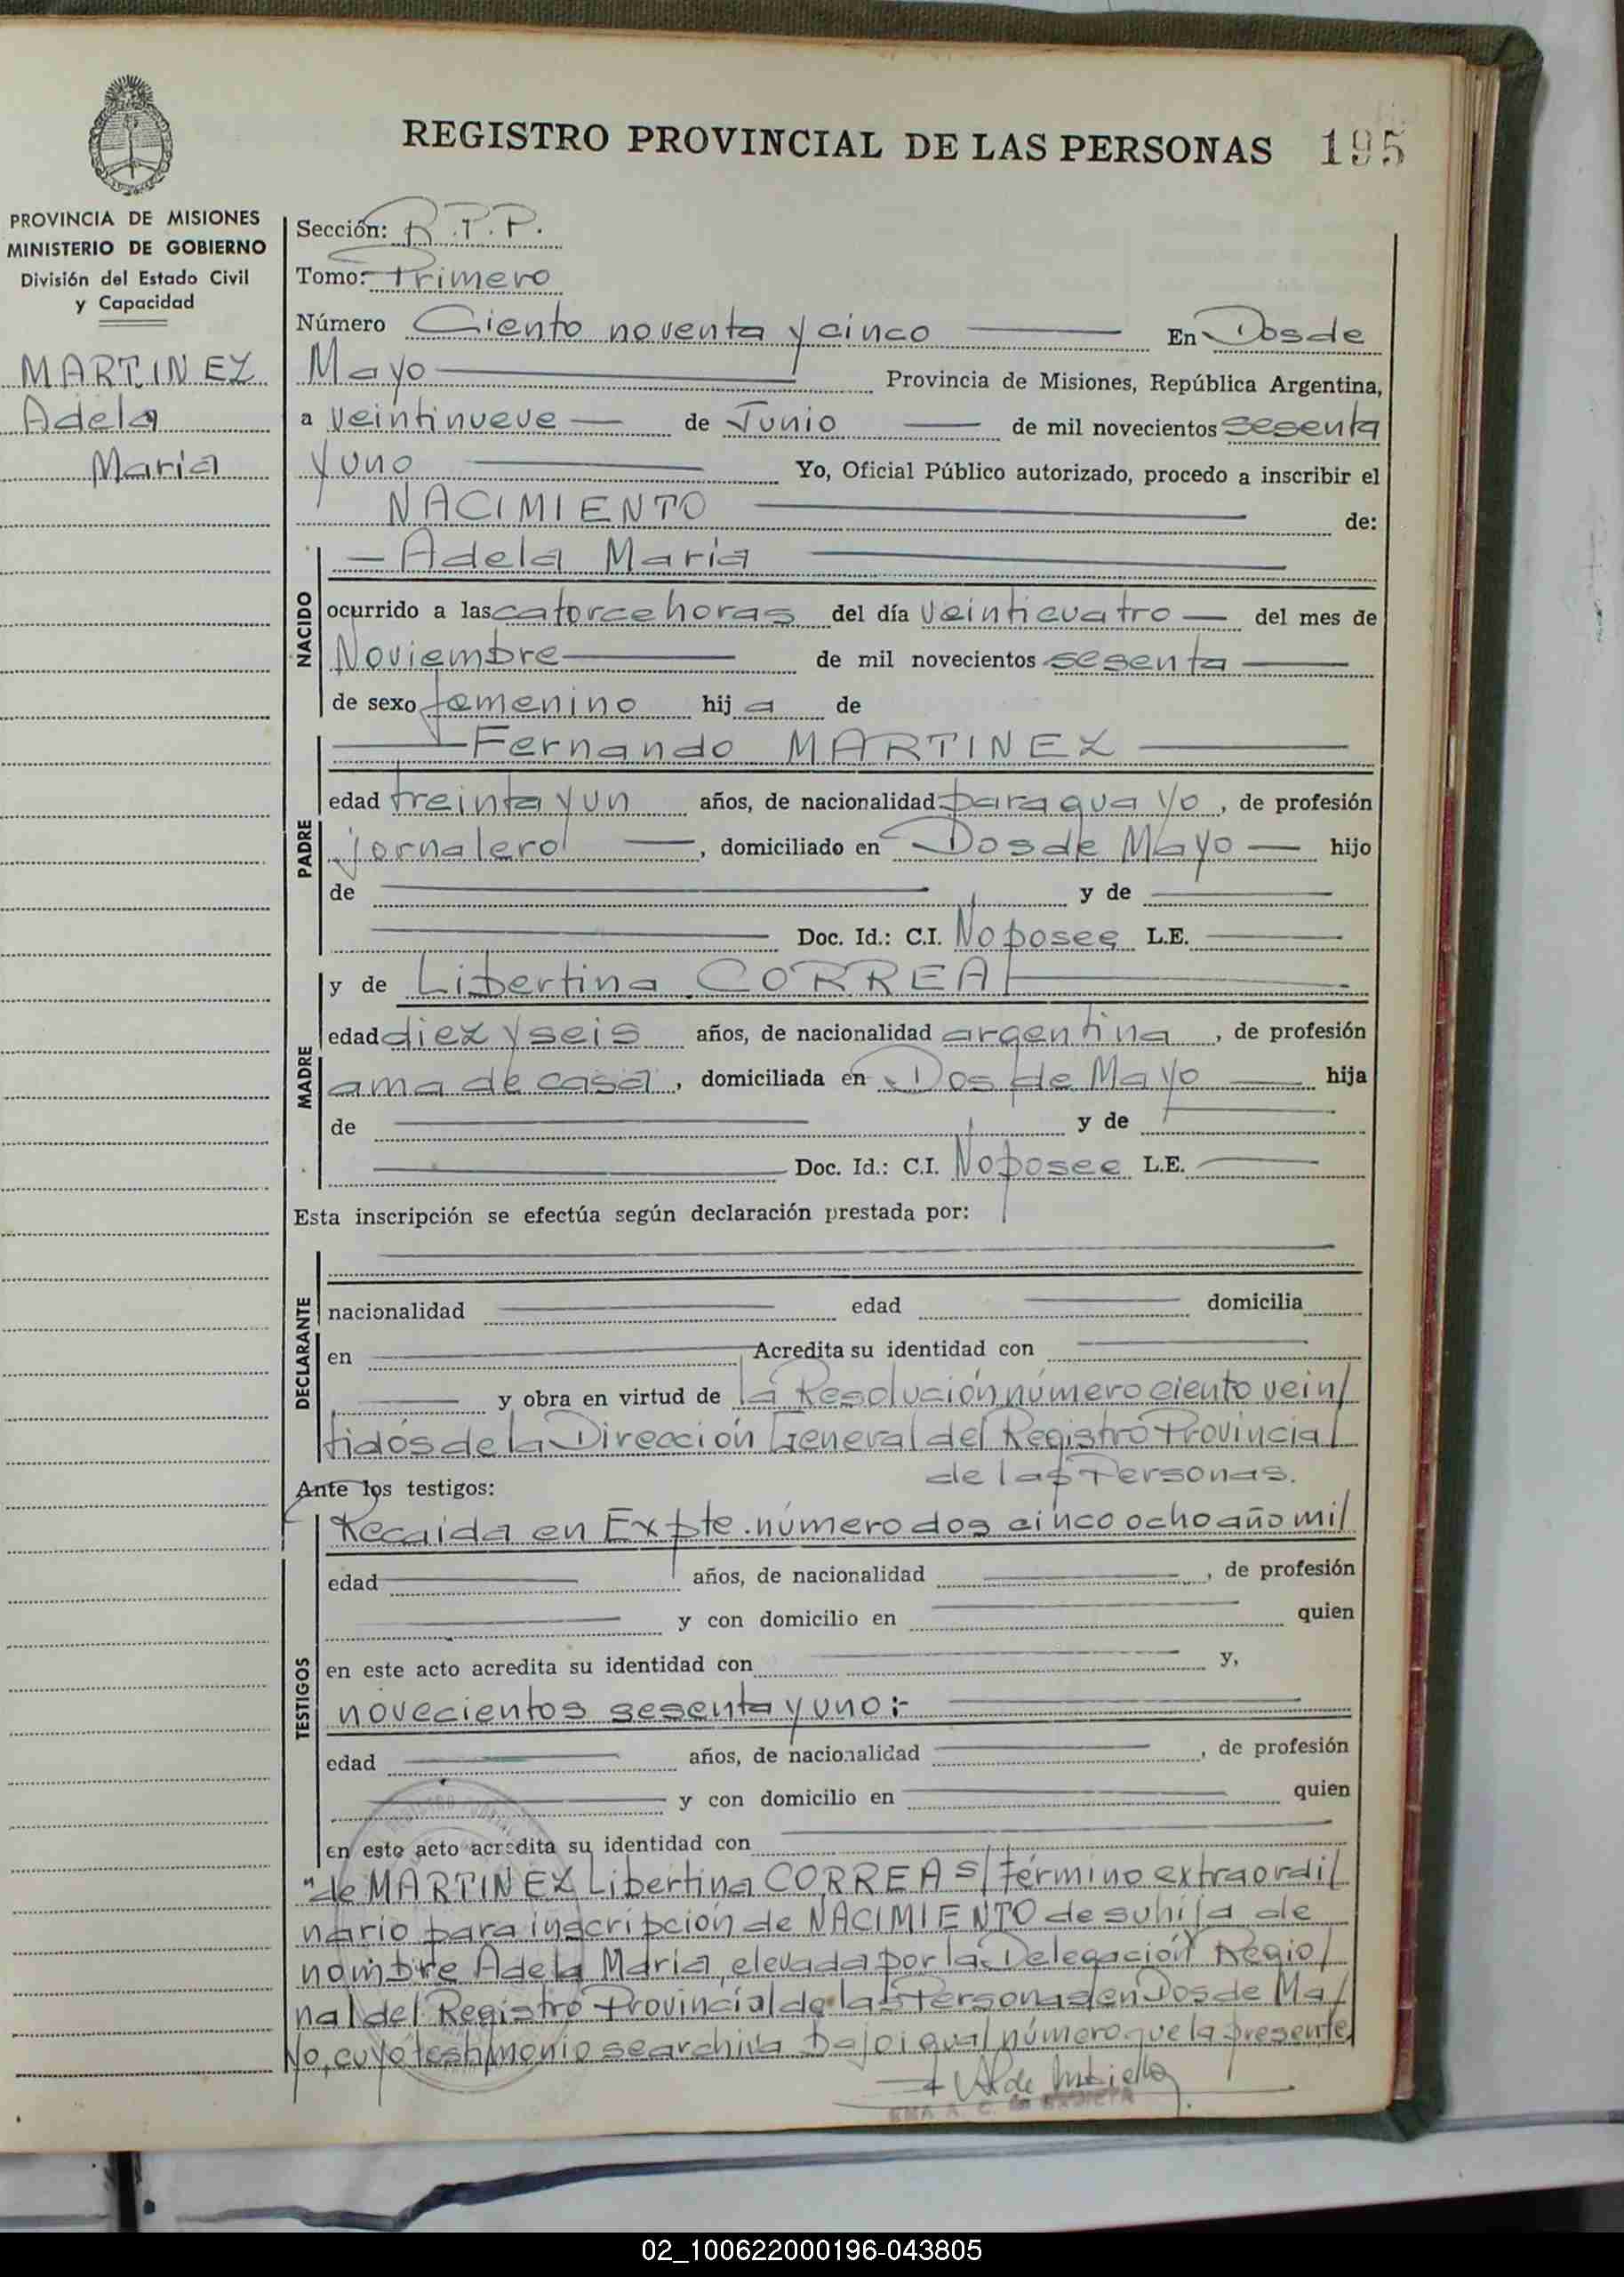 REGISTRO PROVINCIAL DE LAS PERSONAS 195
PROVINCIA DE MISIONES
MINISTERIO DE GOBIERNO
División del Estado Civil
y Capacidad
MARTINEZ
Adela
Maria
Sección: R.P.P.
Tomo: Primero
Número Ciento noventa y cinco En Dos de
Mayo Provincia de Misiones, República Argentina,
a veintinueve de Junio de mil novecientos sesenta
y uno Yo, Oficial Público autorizado, procedo a inscribir el
NACIMIENTO de:
NACIDO
Adela Maria
ocurrido a las catorce horas del día veinticuatro del mes de
Noviembre de mil novecientos sesenta
de sexo femenino hija de
PADRE
Fernando MARTINEZ
edad treinta y un años, de nacionalidad paraguayo, de profesión
jornalero, domiciliado en Dos de Mayo hijo
de y de
Doc. Id.: C.I. No posee L.E.
MADRE
y de Libertina CORREA
edad diez y seis años, de nacionalidad argentina, de profesión
ama de casa, domiciliada en Dos de Mayo hija
de y de
Doc. Id.: C.I. No posee L.E.
Esta inscripción se efectúa según declaración prestada por:
DECLARANTE
nacionalidad edad domicilia
en Acredita su identidad con
y obra en virtud de la Resolución número ciento vein/
tidós de la Dirección General del Registro Provincial
de las Personas.
Ante los testigos:
TESTIGOS
Recaída en Expte. número dos cinco ocho año mil
edad años, de nacionalidad, de profesión
y con domicilio en quien
en este acto acredita su identidad con y,
novecientos sesenta y uno:-
edad años, de nacionalidad, de profesión
y con domicilio en quien
en este acto acredita su identidad con
"de MARTINEZ Libertina CORREA s/término extraordi/
nario para inscripción de NACIMIENTO de su hija de
nombre Adela María, elevada por la Delegación Regio/
nal del Registro Provincial de las Personas en Dos de Ma/
yo, cuyo testimonio se archiva bajo igual número que la presente
02_100622000196-043805